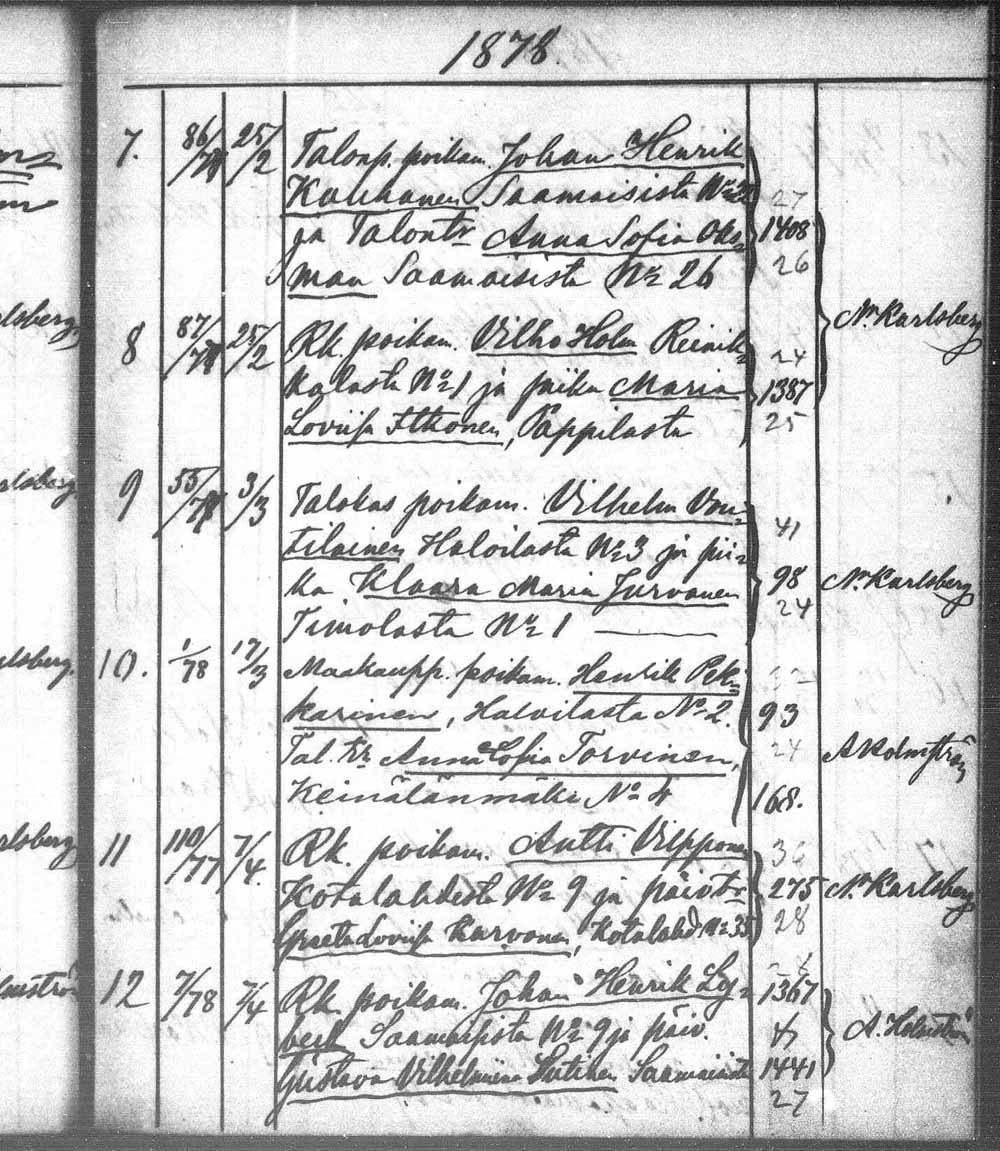 1878.
7. 86/78 25/2 Talonp. poikam. Johan Henrik
Kauhanen Saamaisista No 2
27
ja Talontr Anna Sofia Oks= 1408
man Saamaisista No 26 26
8 87/78 25/2 Rk. poikam. Vilho Holm Reinik= 24 Nn Karlsberg
kalasta No 1 ja piika Maria 1387
Loviisa Itkonen, Pappilasta 25
9 55/78 3/3 Talokas poikam. Vilhelm Vou= 41
tilainen Haloilasta No 3 ja pii=
ka Klaara Maria Jurvanen 98 Nn Karlsberg
24
Timolasta No 1
10. 1/78 17/3 Maakaupp. poikam. Henrik Pek=
karinen, Halvilasta No 2. 93
Tal. tr Anna Sofia Torvinen, 24 A Holmström
Keinälänmäki No 4 168.
11 110/77 7/4. Rk. poikam. Antti Vilpponen 36
Kotalahdesta No 9 ja päivtr 275 Nn Karlsberg
Greeta Loviisa Karvonen, Kotalahd No 35 28
12 7/78 7/4 Rk. poikam. Johan Henrik Ly= 1367
beck Saamaisista No 9 ja päiv. A. Holmström
Gustava Vilhelmiina Hutinen Saamaisista 1441
27